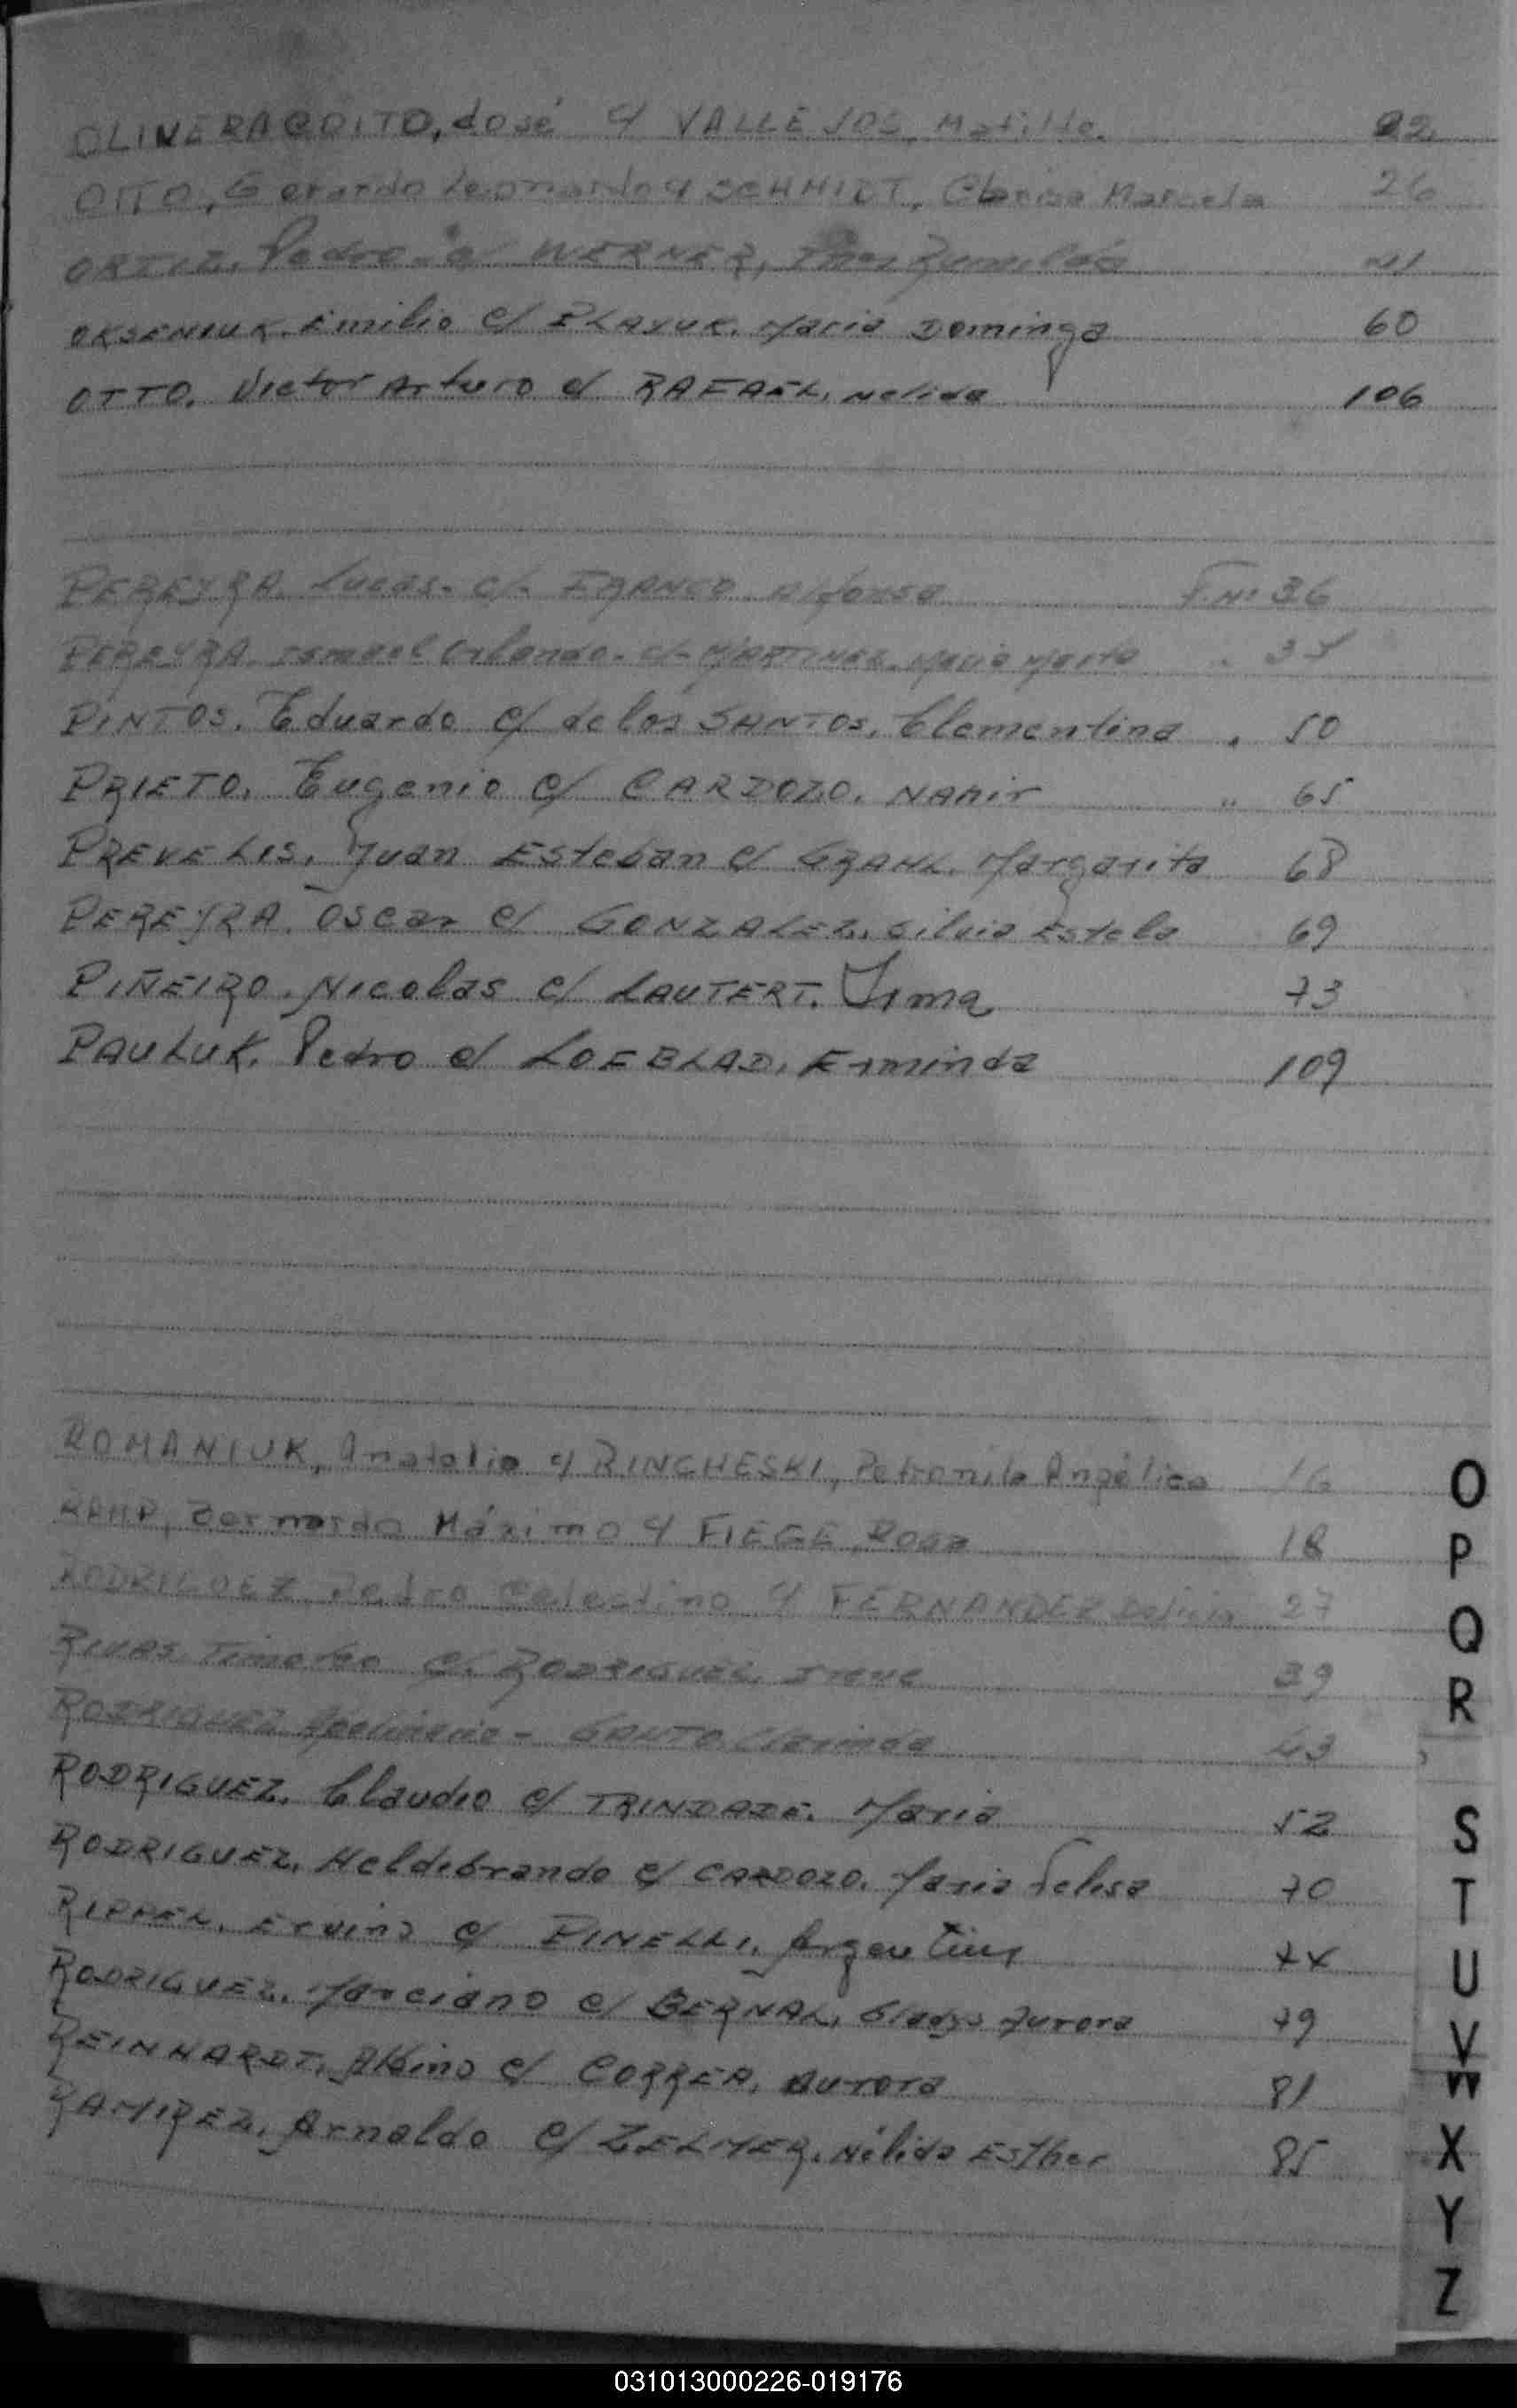 OLIVERA GOITO, José y VALLEJOS, Matilde. 22
OTTO, Gerardo Leonardo y SCHMIDT, Clarisa Marcela 26
ORTIZ, Pedro c/ WERNER, 41
OKSENIUK. Emilio c/ PLAXUK. Maria Dominga 60
OTTO. Victor Arturo c/ RAFAEL, Nelida 106
PEREYRA. Lucas. c/. FRANCO F. Nº 36
PEREYRA. Ismael Orlando. c/. MARTINEZ. Maria Marta
PINTOS. Eduardo c/ de los SANTOS, Clementina . 50
PRIETO. Eugenio c/ CARDOZO. NAHIR " 65
PREVELIS. Juan Esteban c/ GRAHL. Margarita 68
PEREYRA. Oscar c/ GONZALEZ. Silvia Estela 69
PIÑEIRO. Nicolas c/ LAUTERT. Irma 73
PAULUK. Pedro c/ LOEBLAD, Erminda 109
ROMANIUK, Anatolio y RINCHESKI, Petronila Angélica 16
RAMP, Bernardo Máximo y FIEGE, Rosa 18
RODRIGUEZ, Pedro Celestino y FERNANDEZ 27
RIVAS. Timoteo c/. RODRIGUEZ. Irene 39
RODRIGUEZ - SANTO Clarinda 43
RODRIGUEZ. Claudio c/ TRINDADE. Maria 52
RODRIGUEZ, Heldebrando c/ CARDOZO. Maria Felisa 70
RIPPEL. Ervino c/ PINELLI. Argentina 74
RODRIGUEZ. Marciano c/ BERNAL, Gladys Aurora 79
REINHARDT. Albino c/ CORREA, Aurora 81
RAMIREZ. Arnaldo c/ ZELMER. Nélida Esther 85
O
P
Q
R
S
T
U
V
W
X
Y
Z
031013000226-019176